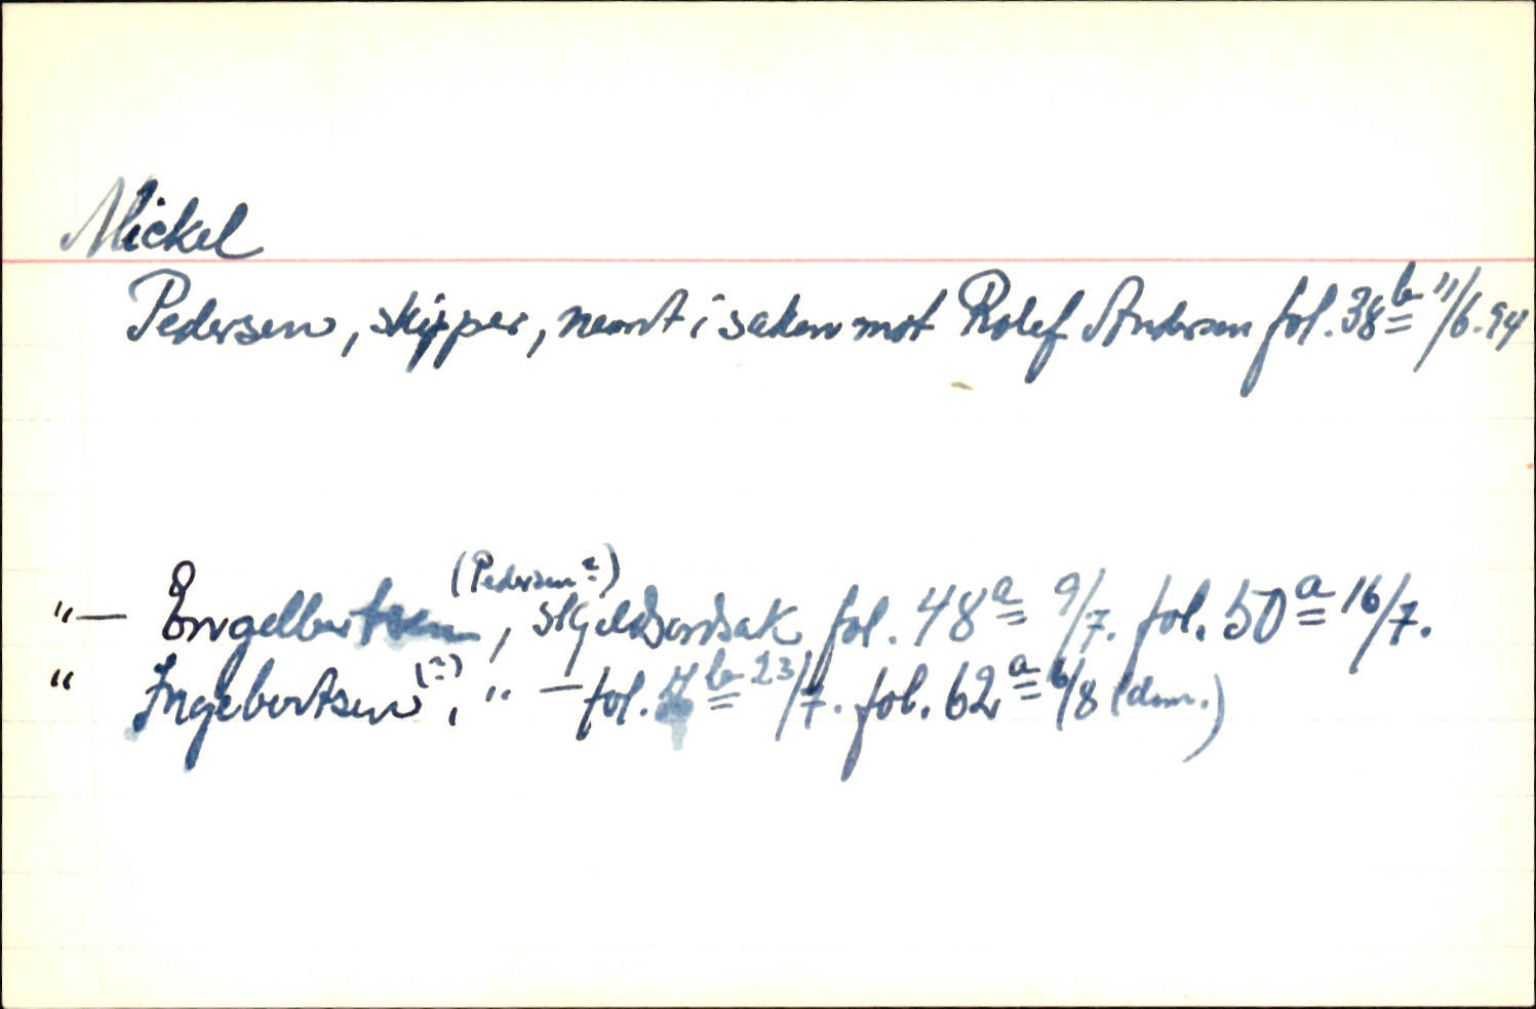 Mickel
Pedersen, skipper, nevnt i saken mot Rolef Andersen fol. 38b 11/6.94
(Pedersen?)
"— Engelbertsen, skjeldsordsak fol. 48a 9/7. fol. 50a 16/7.
(?)
" Ingebertsen, " — fol. b 23/7. fol. 62a 6/8 (dom.)